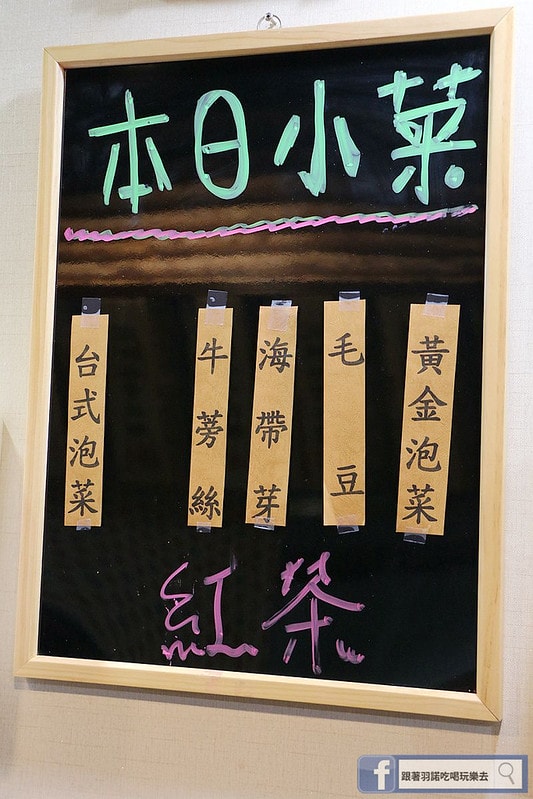 本日小菜
黃金泡菜
毛豆
海帶芽
牛蒡絲
台式泡菜
紅茶
f 跟著羽諾吃喝玩樂去